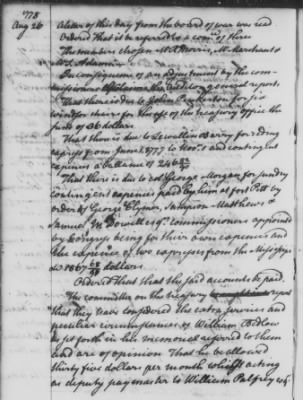 1778
Aug 26
A letter of this day from the board of war was read
Ordered that it be referred to a comee of three
The members chosen Mr R Morris, Mr Marchant &
Mr S. Adams.
In consequence of an adjustment by the com-
missioners of claims the auditor general reports
That there is due to John Pinkerton for six
windsor chairs for the use of the treasury office the
sum of 36 dollars
That there is due to Lewellin Barry for riding
express from June 1, 1777 to Novr 1 and contingent
expences a ballance of 246
That there is due to col George Morgan for sundry
contingent expences paid by him at fort Pitt by
order of George Clymer, Sampson Matthews &
Samuel McDowell esqrs commissioners appointed
by congress being for their own expences and
the expence of two expresses from the Mississippi
1867 dollars
Ordered that the said accounts be paid.
The committee on the treasury report
that they have considered the extra services and
peculiar circumstances of William Bedlow
as set forth in his memorial referred to them
and are of opinion That he be allowed
thirty five dollars per month whilst acting
as deputy paymaster to William Palfrey esqr